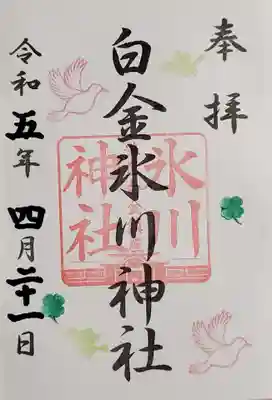 奉拝
白金氷川神社
氷川
神社
令和五年四月二十一日